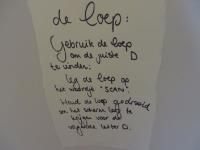 de loep:
Gebruik de loep
om de juiste D
te vinden:
Leg de loep op
het woordje "SCAN"
Houd de loep gedraaid
om het scherm leeg te
krijgen voor de
volgende letter D.